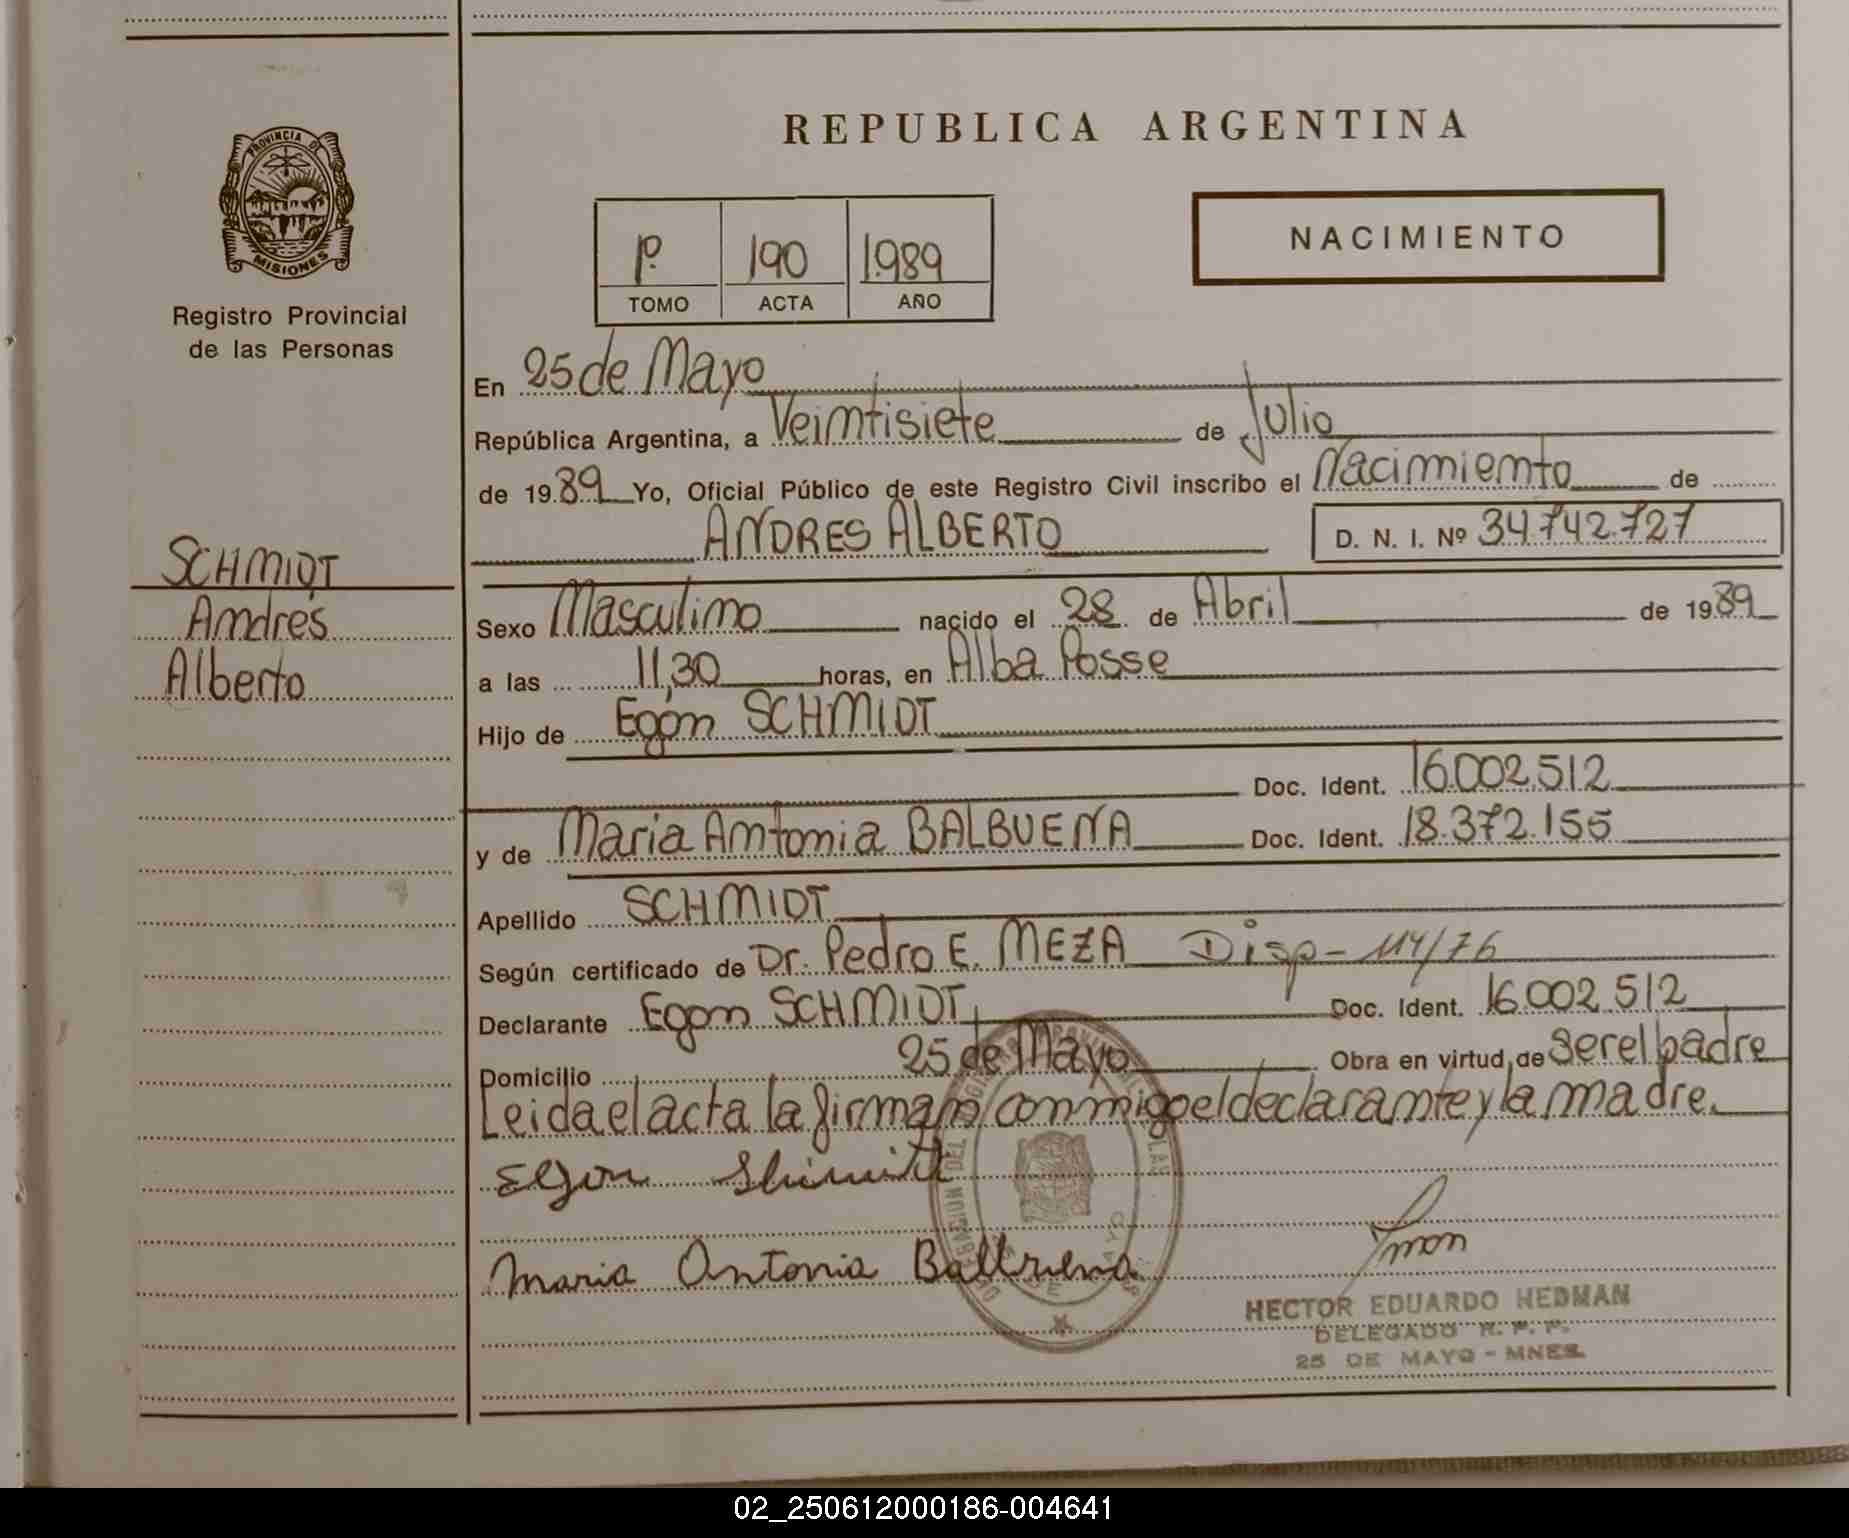 PROVINCIA D
MISIONES
Registro Provincial
de las Personas
SCHMIDT
Andrés
Alberto
REPUBLICA ARGENTINA
1º 190 1989
TOMO ACTA AÑO
NACIMIENTO
En 25 de Mayo
República Argentina, a Veintisiete de Julio
de 1989 Yo, Oficial Público de este Registro Civil inscribo el Nacimiento de
ANDRES ALBERTO D. N. I. Nº 34.742.727
Sexo Masculino nacido el 28 de Abril de 1989
a las 11,30 horas, en Alba Posse
Hijo de Egon SCHMIDT
Doc. Ident. 16.002.512
y de Maria Antonia BALBUENA Doc. Ident. 18.372.155
Apellido SCHMIDT
Según certificado de Dr. Pedro E. MEZA Disp- 114/76
Declarante Egon SCHMIDT Doc. Ident. 16.002.512
Domicilio 25 de Mayo Obra en virtud de ser el padre
Leida el acta la firman conmigo el declarante y la madre.
Egon
Maria Antonia Balbuena
HECTOR EDUARDO HEDMAN
DELEGADO R. P. P.
25 DE MAYO - MNES.
02_250612000186-004641